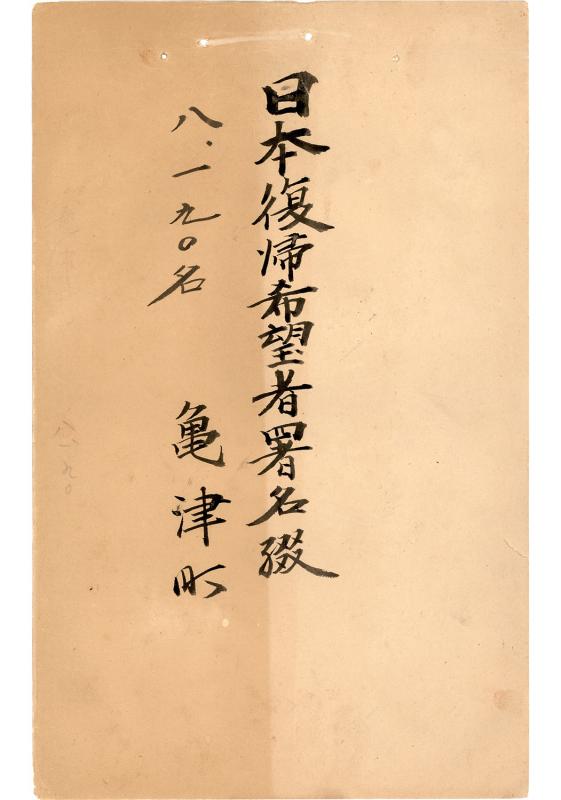 日本復帰希望者署名綴
八、一九〇名 亀津町
八一九〇